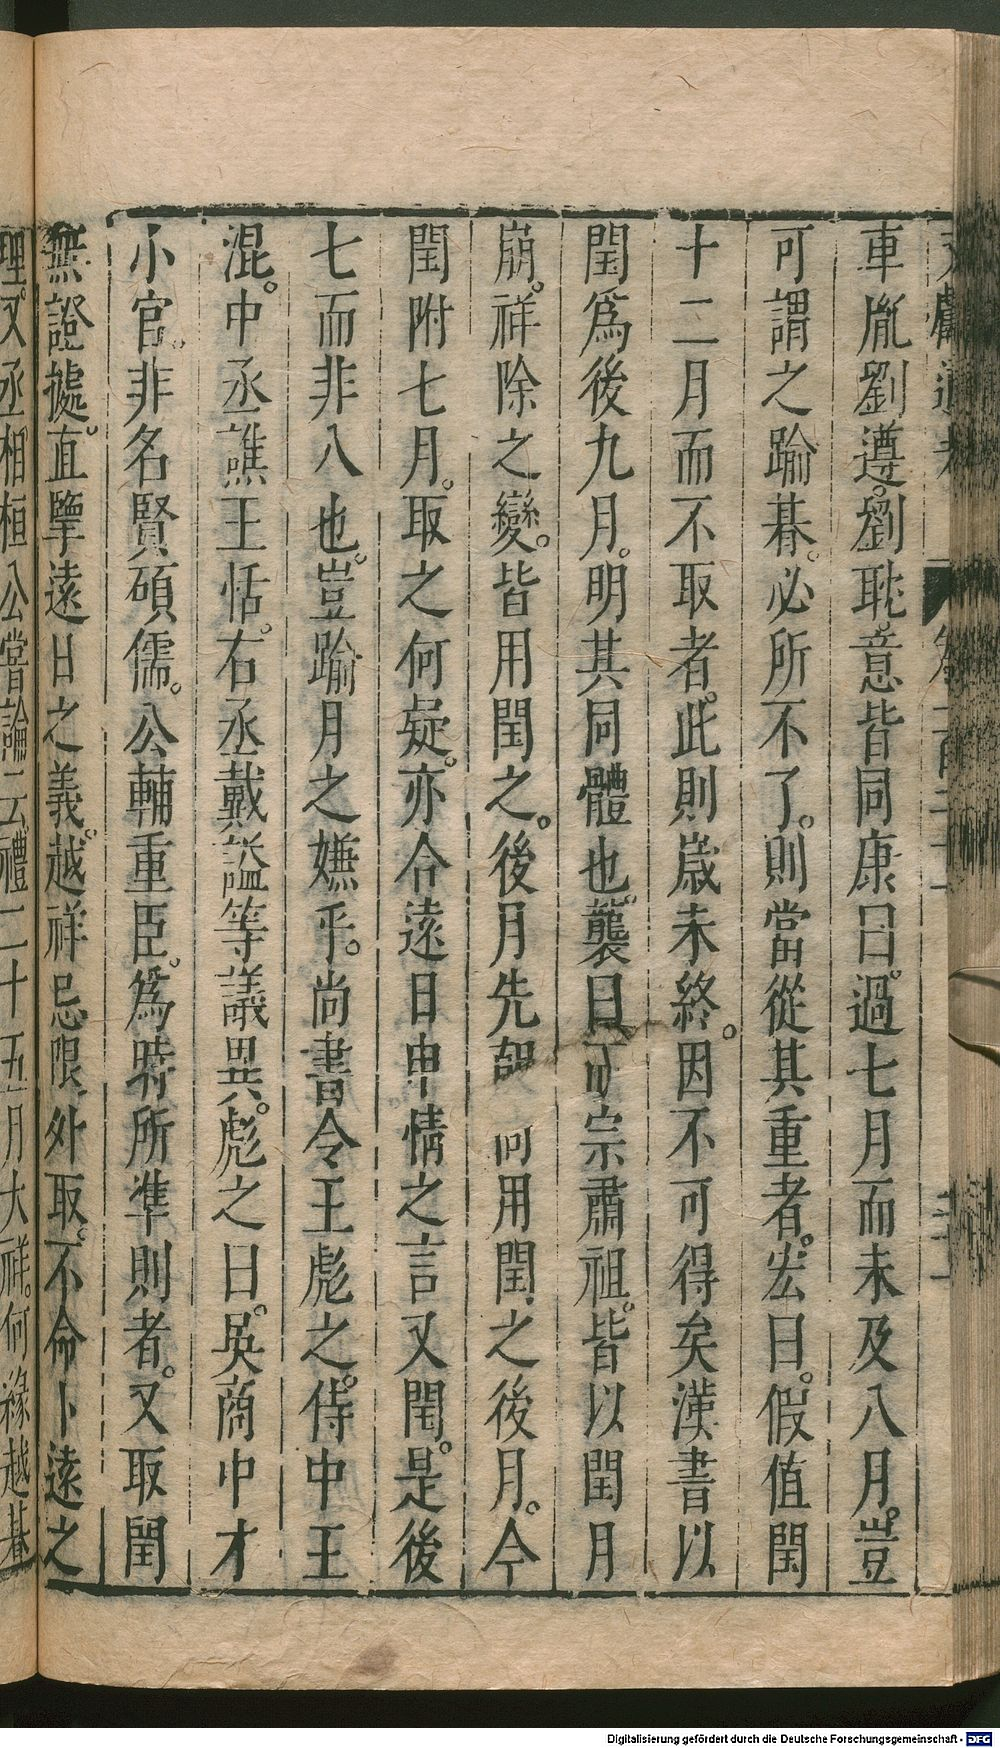 車胤劉遵。劉耽。意皆同康曰。過七月而未及八月。豈
可謂之踰朞。必所不了。則當從其重者。宏曰。假值閏
十二月而不取者。此則歲未終。因不可得矣漢書以
閏爲後九月。明其同體也。襲曰 宗肅祖。皆以閏月
崩。祥除之變。皆用閏之。後月先 何用閏之後月。今
閏附七月。取之何疑。亦合遠日申情之言又閏。是後
七而非八也。豈踰月之嫌乎。尚書令王彪之。侍中王
混。中丞譙王恬。右丞戴謐等議異。彪之曰。吳商中才
小官。非名賢碩儒。公輔重臣。爲時所準則者。又取閏
無證據。直擥遠日之義。越祥忌限外取。不命卜遠之
理。又丞相桓公嘗論云禮二十五月大祥。何緣越朞
Digitalisierung gefördert durch die Deutsche Forschungsgemeinschaft - DFG